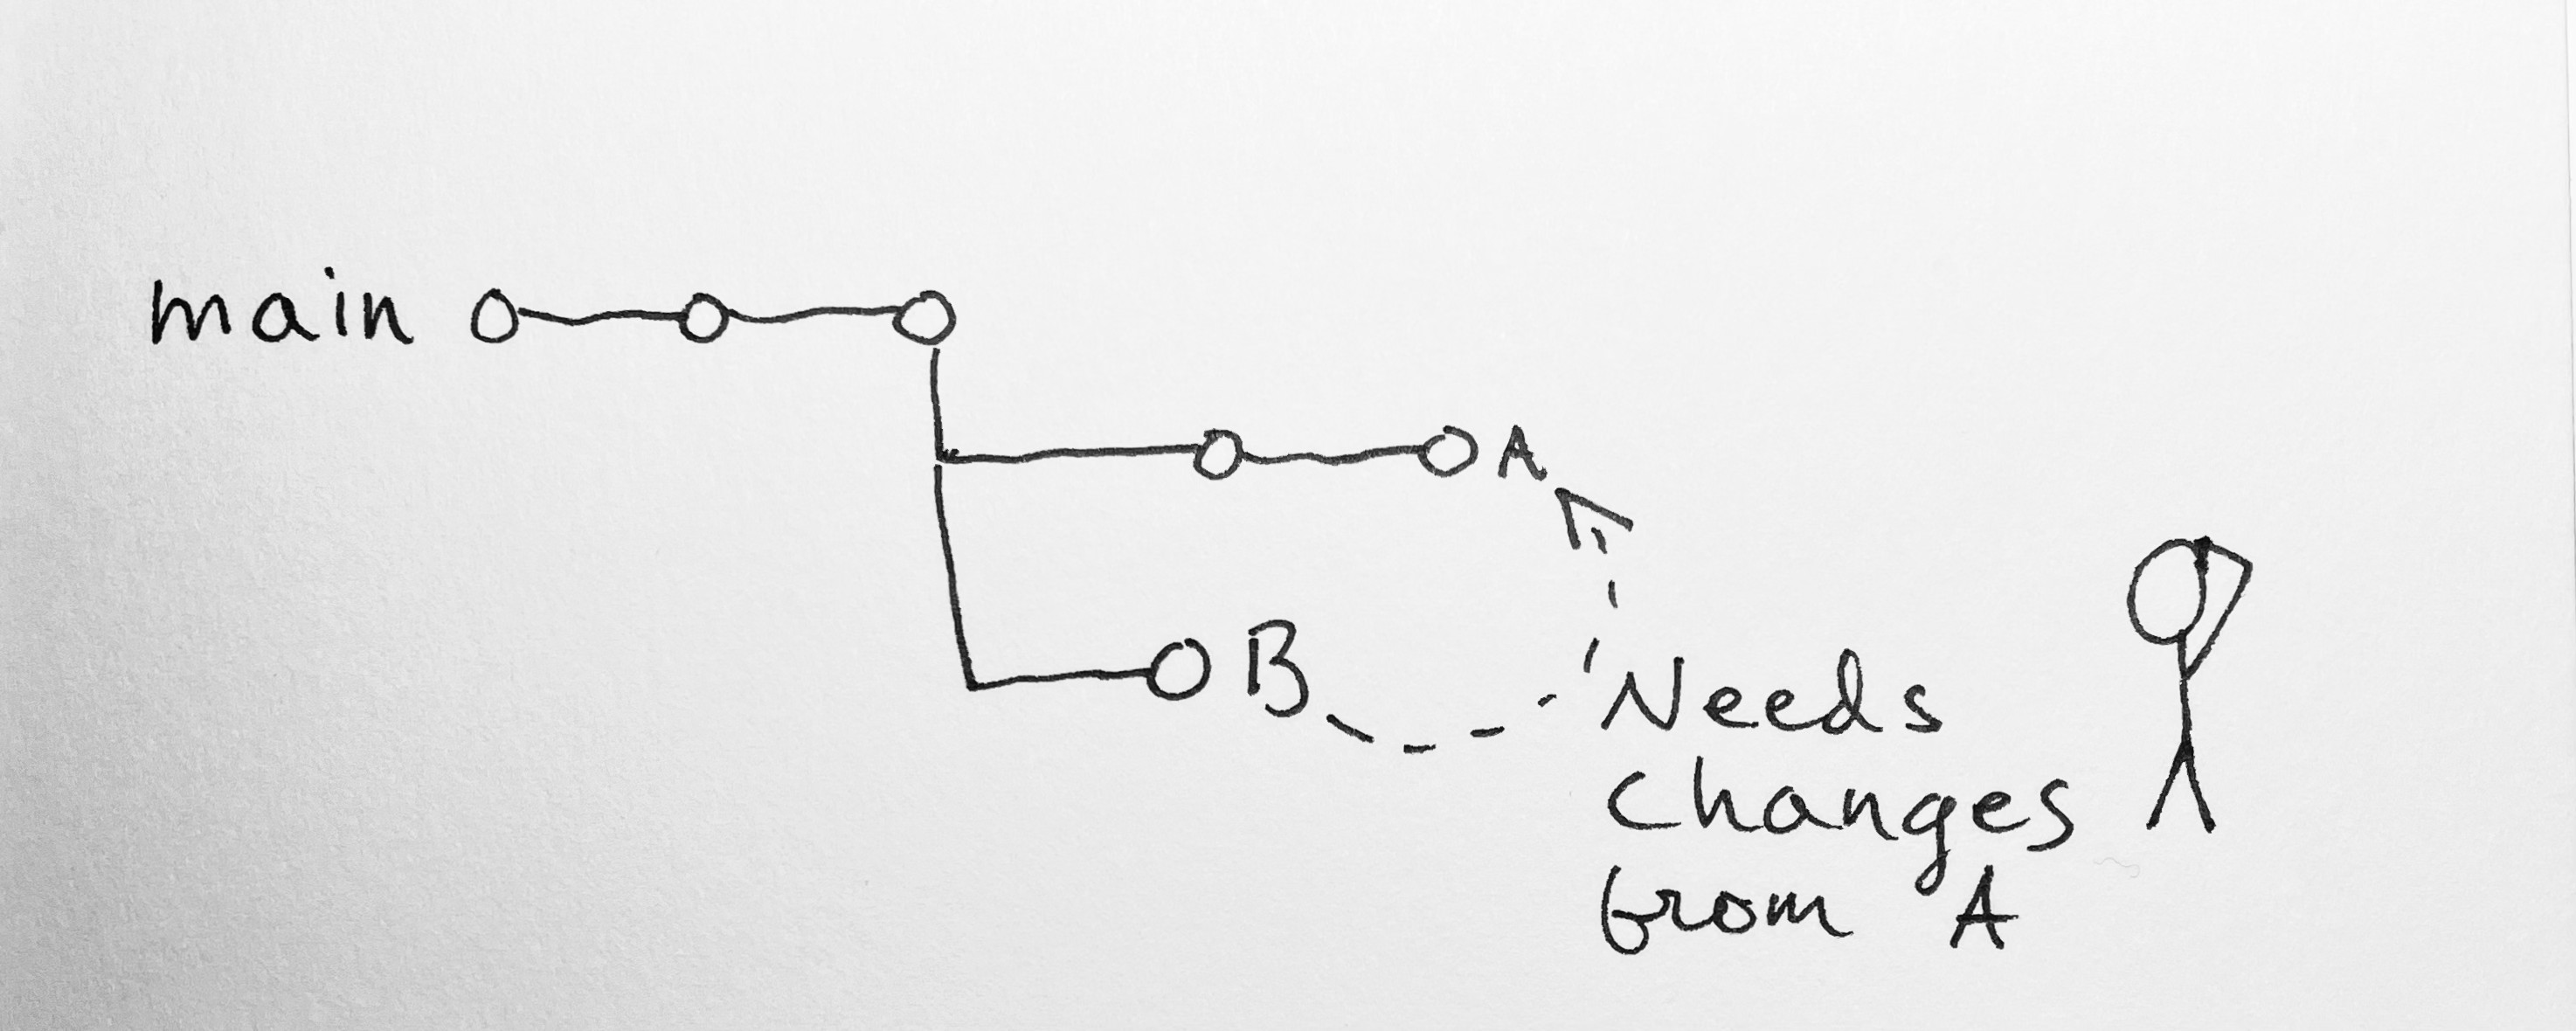 main
A
B
Needs
Changes
from A